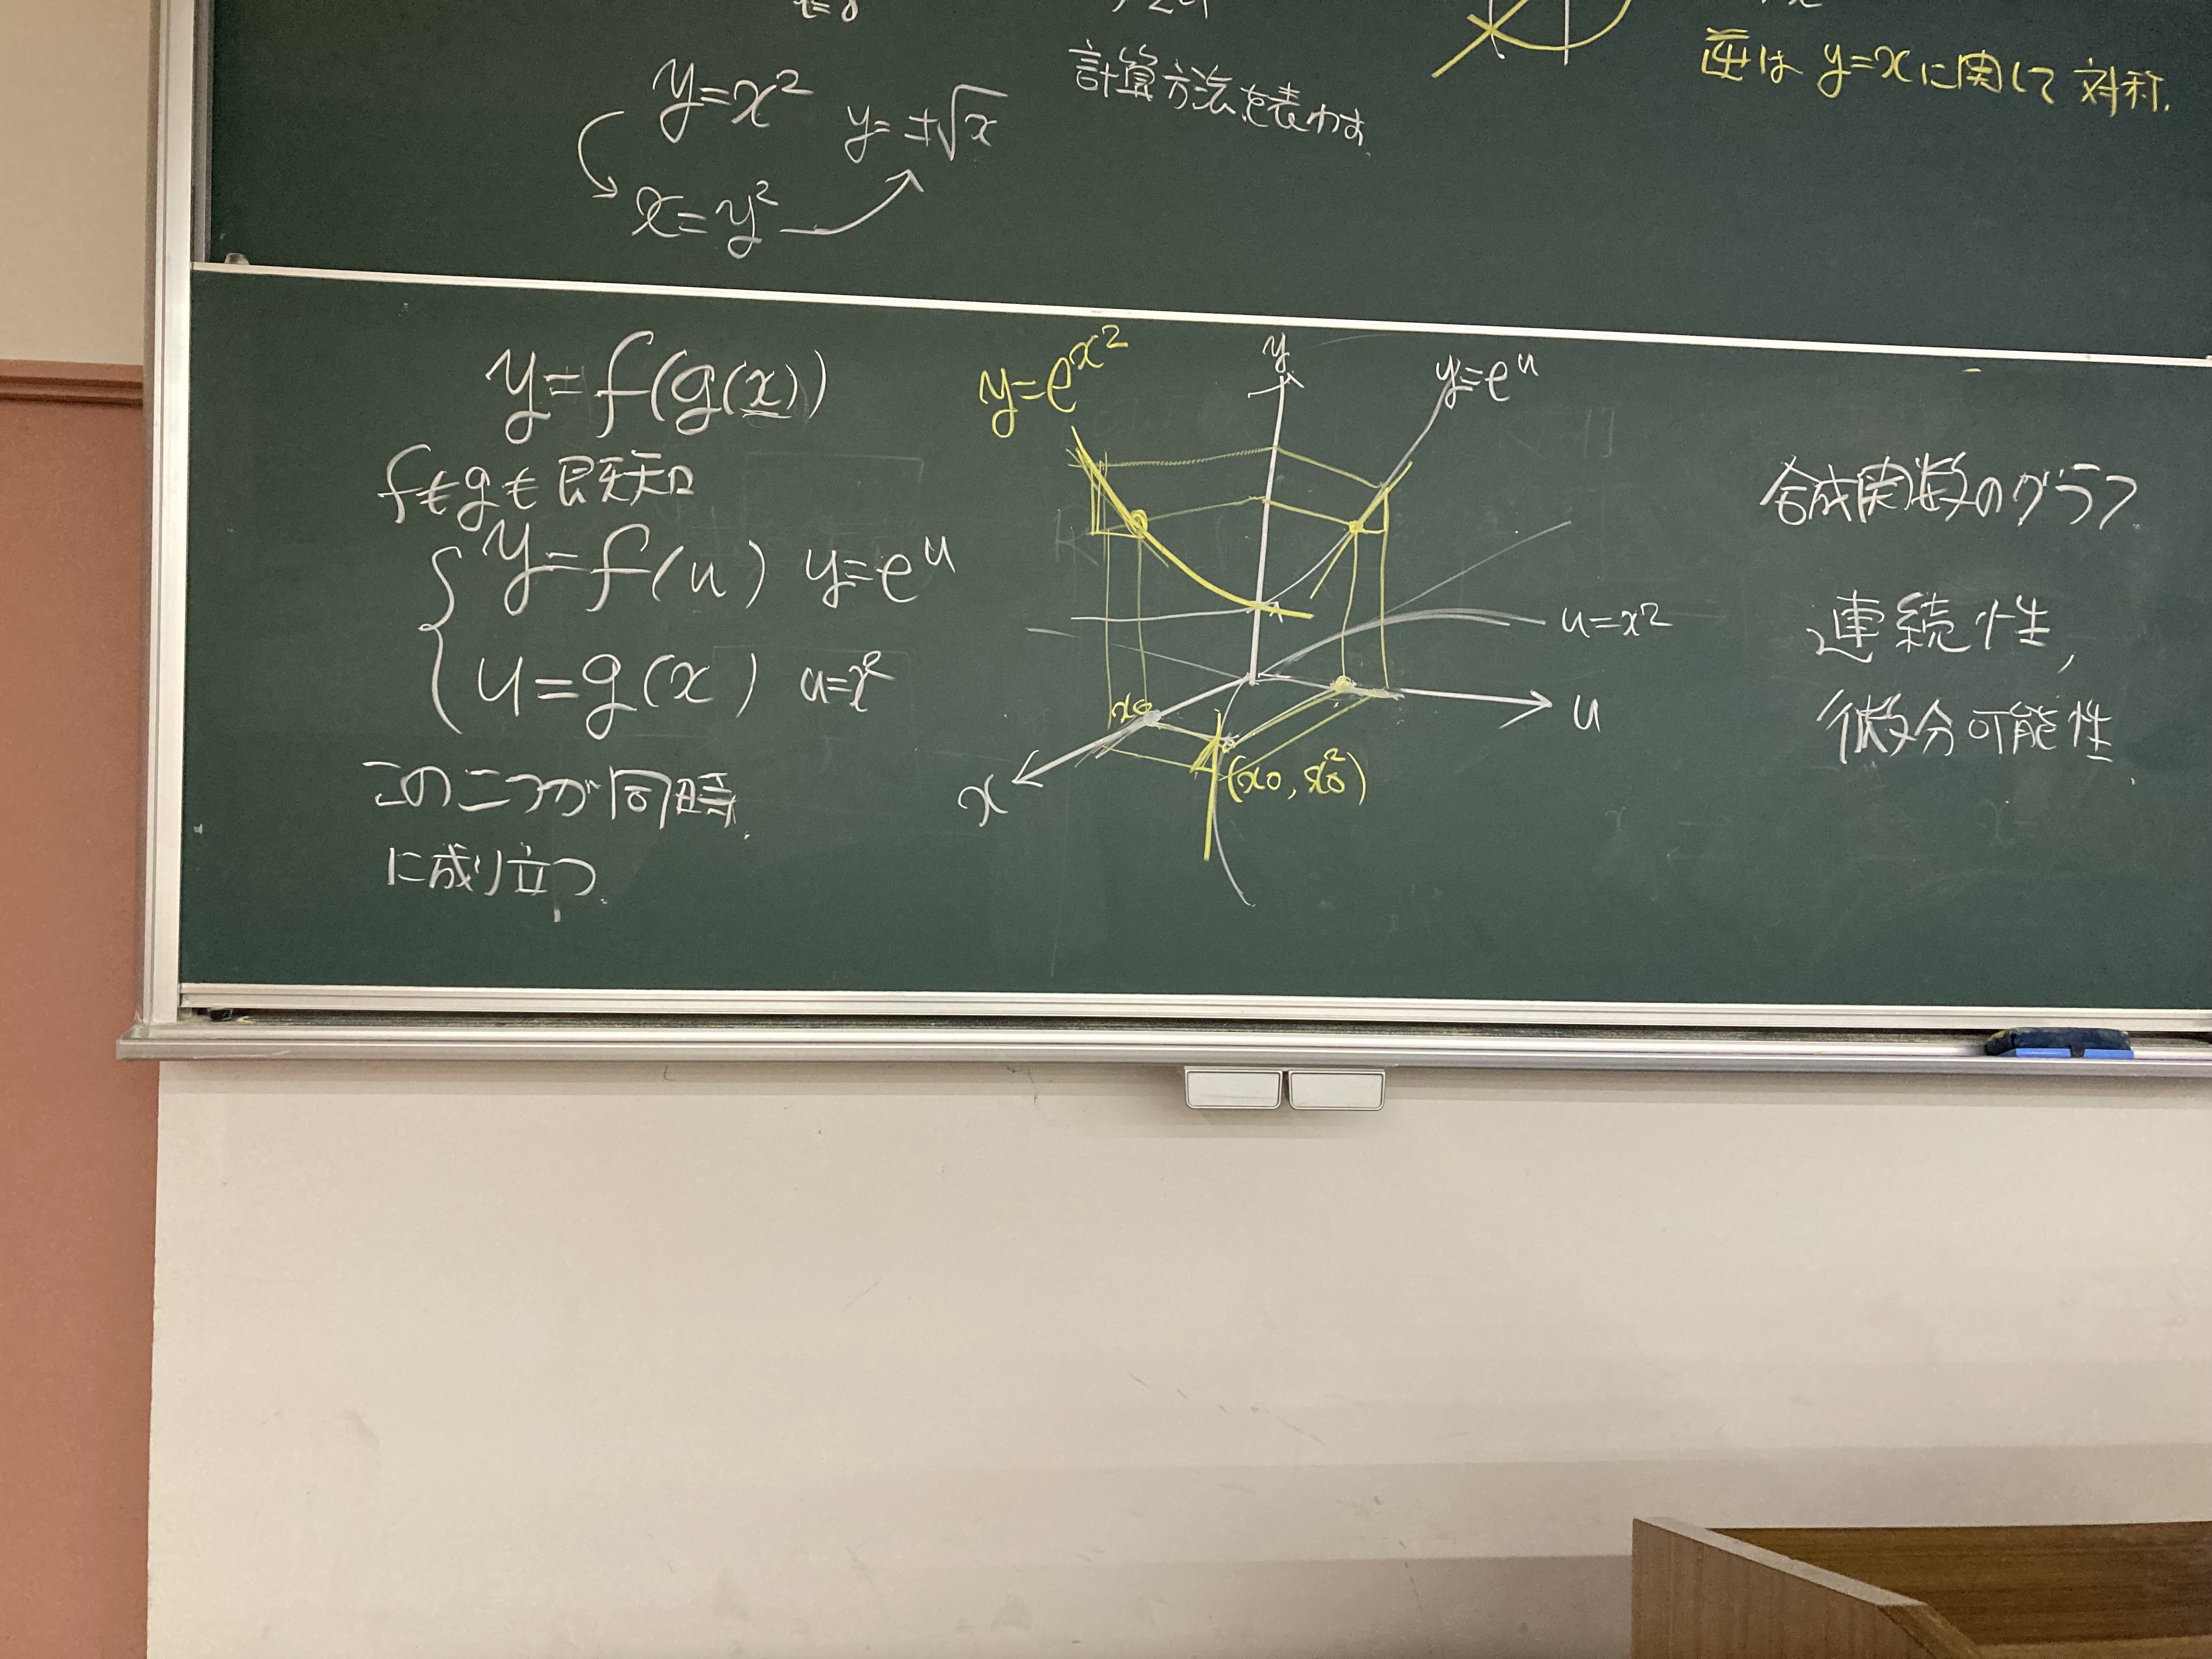 y=x² y=±√x
x=y²
計算方法を表わす.
逆は y=xに関して対称.
y=f(g(x))
fもgも既知
y=f(u) y=e^u
u=g(x) u=x²
この二つが同時
に成り立つ.
y=e^x²
y
y=e^u
u=x²
u
x₀
x
(x₀, x₀²)
合成関数のグラフ
連続性,
微分可能性.